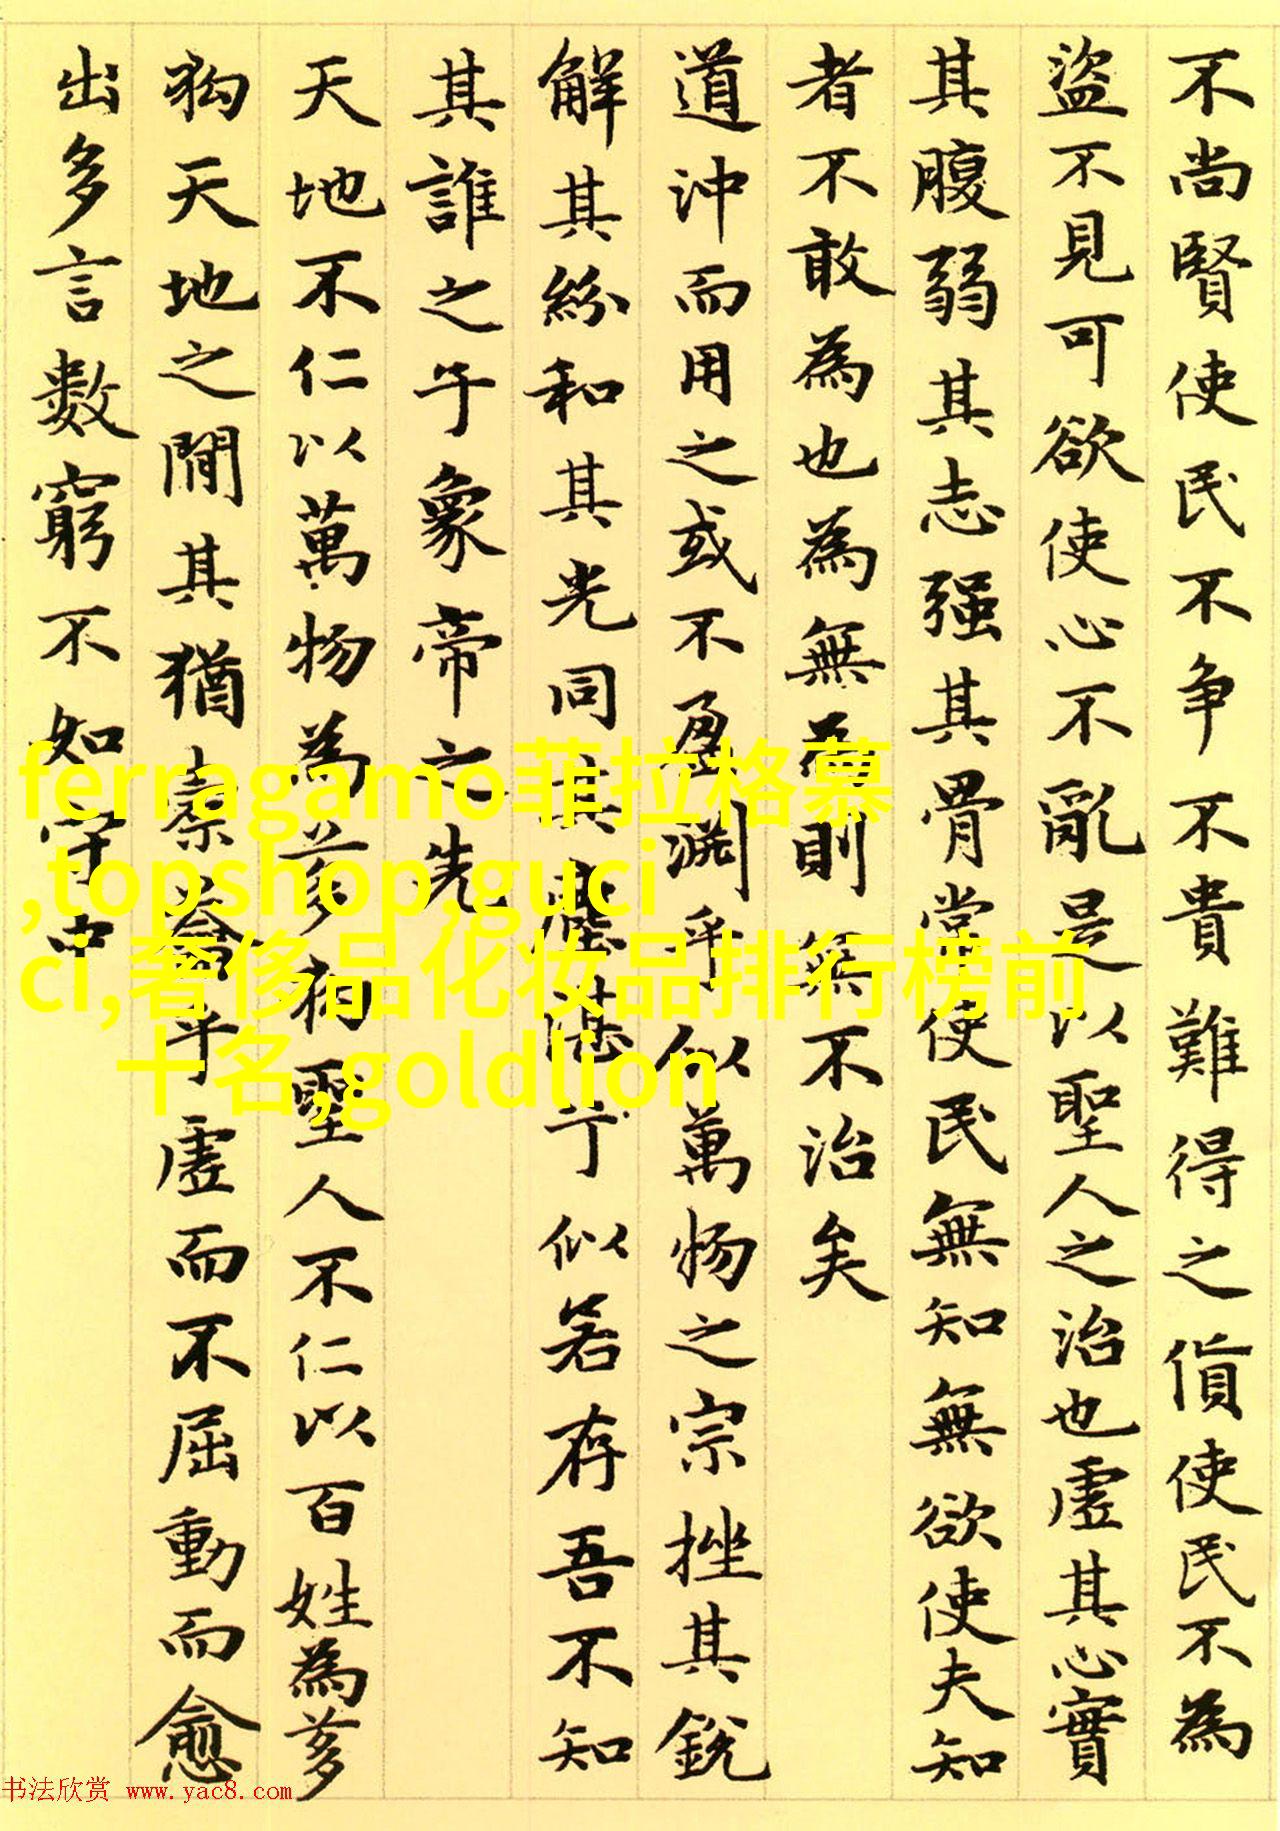 不尚賢使民不争不貴難得之貨使民不為
盜不見可欲使心不亂是以聖人之治也虛其心實
其腹弱其志强其骨常使民無知無欲使夫知
者不敢為也為無為則無不治矣
道沖而用之或不盈淵乎似萬物之宗挫其銳
解其紛和其光同其塵湛乎似若存吾不知
其誰之子象帝之先
天地不仁以萬物為芻狗聖人不仁以百姓為芻
狗天地之間其猶橐籥乎虛而不屈動而愈
出多言數窮不如守中
ferragamo菲拉格慕
,topshop,guci
ci,奢侈品化妆品排行榜前
十名,goldlion
书法欣赏 www.yac8.com